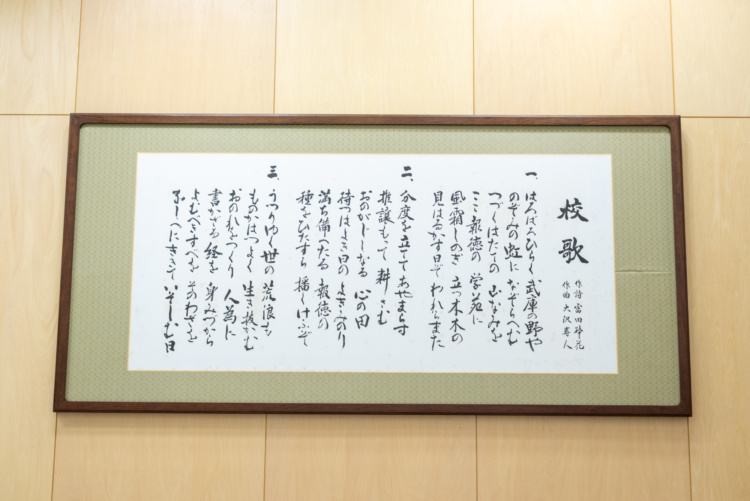 校歌
作詩 富田砕花
作曲 大沢寿人
一、はろばろひらく 武庫の野や
のぞみの虹に なぞらへむ
つづくはたての 山なみを
ここ報徳の 学苑に
風霜しのぎ 立つ木木の
見はるかす日ぞ われらまた
二、分度を立てて あやまらず
推譲もつて 耕さむ
おのがじしなる 心の田
待つはよき日の よきみのり
満ち備へたる 報徳の
種をひたすら 播くけふぞ
三、うつりゆく世の 荒浪を
ものかはつよく 生き抜かむ
おのれをつくり 人為に
書かざる経を 身みづから
よむべきすべを そのわざを
をしへにききて いそしむ日